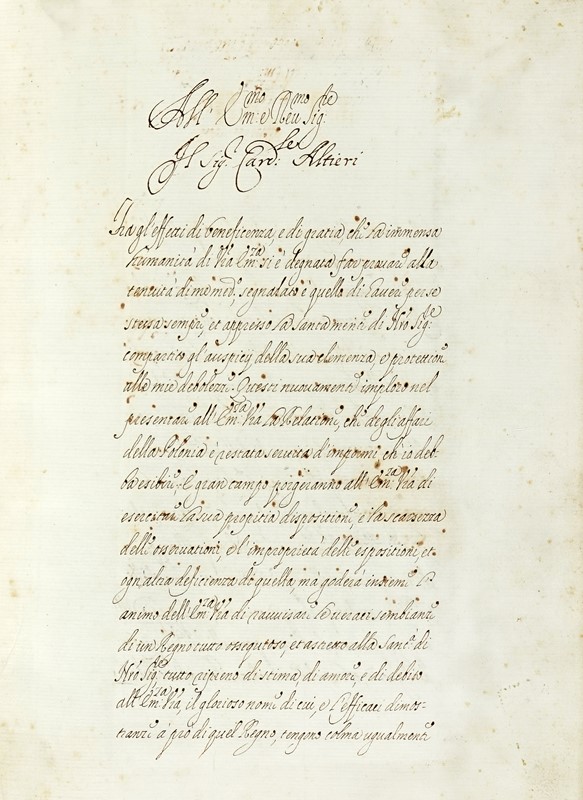 All' Em:mo e Reu:mo Sig:re
Il Sig:r Card:le Altieri
Tra gl'effetti di beneficenza, e di gratia, che la immensa
humanità di Vra Em:za si è degnata far prouare alla
tenuità di me med:o, segnalato è quello di hauere per se
stessa sempre, et appresso la santa mente di N'ro Sig:re
compartito gl'auspicij della sua clemenza, e protettione
alle mie debolezze. Questi nuouamente imploro nel
presentare all'Em:za V'ra la Relatione, che degli affari
della Polonia è restata seruita d'impormi ch'io deb-
ba esibire. E gran campo porgeranno all'Em:za V'ra di
esercitare la sua propitia dispositione, e la scarsezza
delle osseruationi, e l'improprietà delle espositioni, et
ogn'altra deficienza di quella, mà goderà insieme l'
animo dell'Em:za V'ra di rauuisare le ueraci sembianze
di un Regno tutto ossequioso, et astretto alla Sant:à di
N'ro Sig:re tutto ripieno di stima, di amore, e di debito
all'Em:za V'ra, il glorioso nome di cui, e l'efficaci dimos-
tranze à prò di quel Regno, tengono colma ugualmente